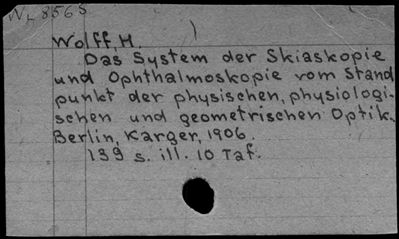 WL 8565
Wolff, H.
Das System der Skiaskopie
und Ophthalmoskopie vom Stand
punkt der physischen, physiologi-
schen und geometrischen Optik.
Berlin, Karger, 1906.
139 s. ill. 10 Taf.